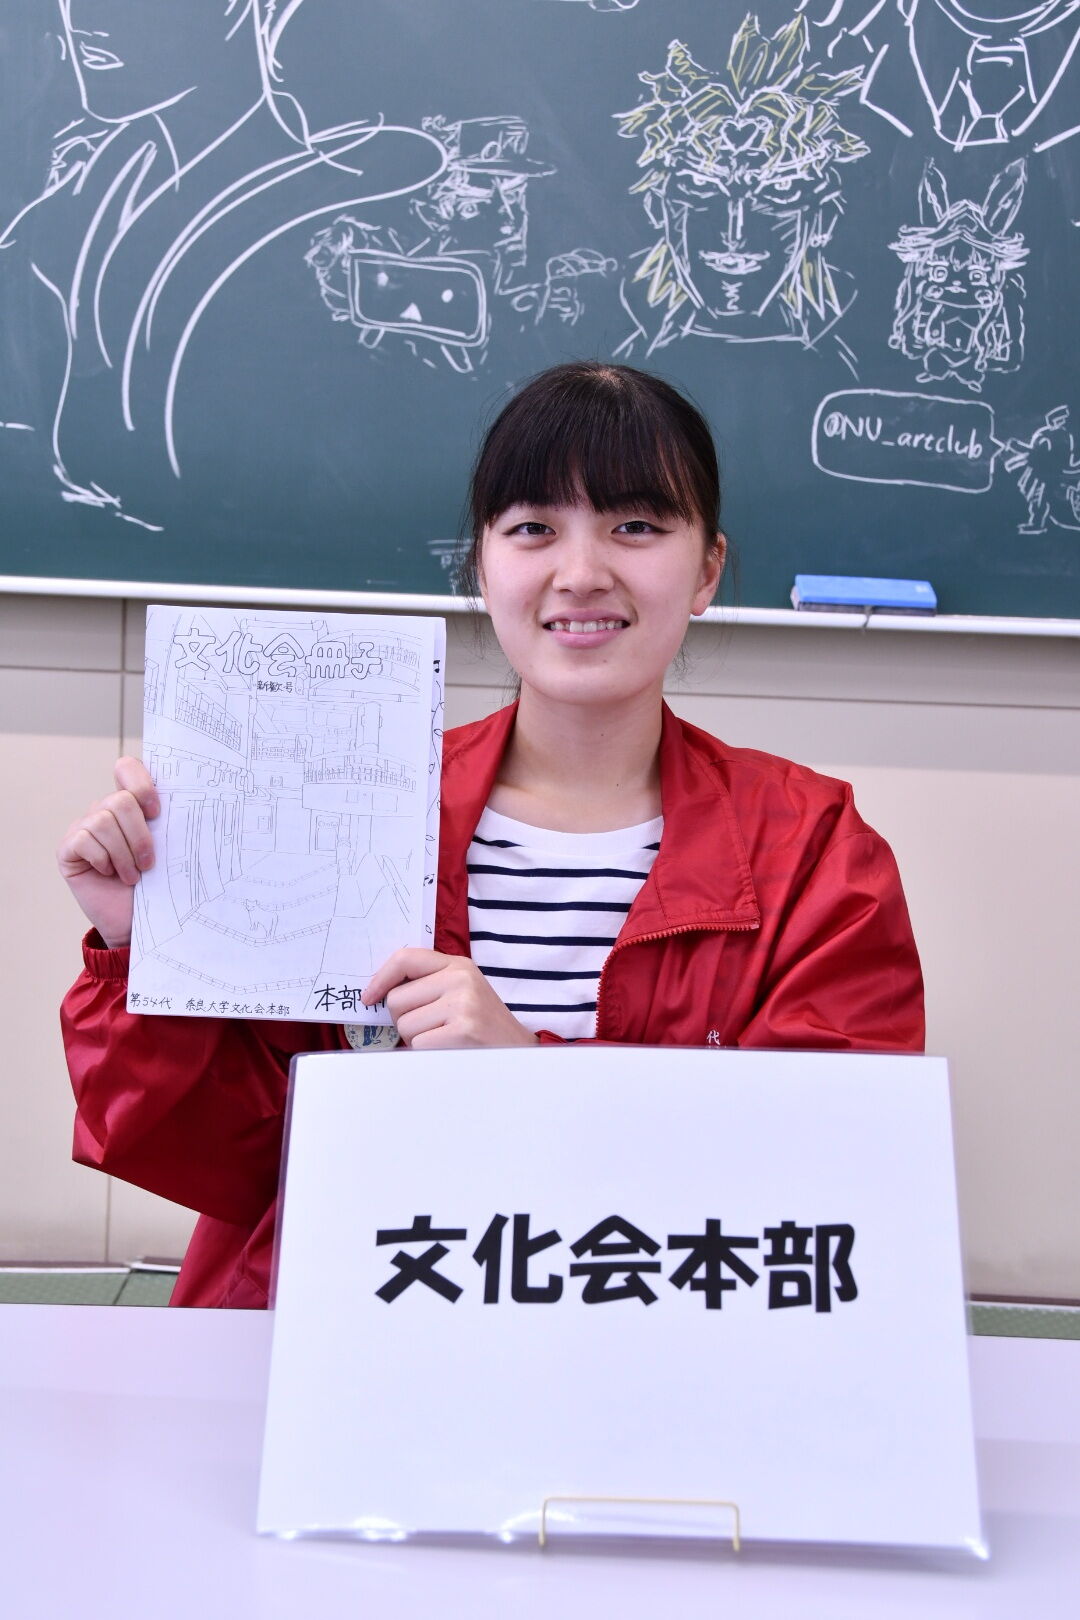 @NU_artclub
文化会冊子
新歓号
第54代 奈良大学文化会本部
本部
代
文化会本部